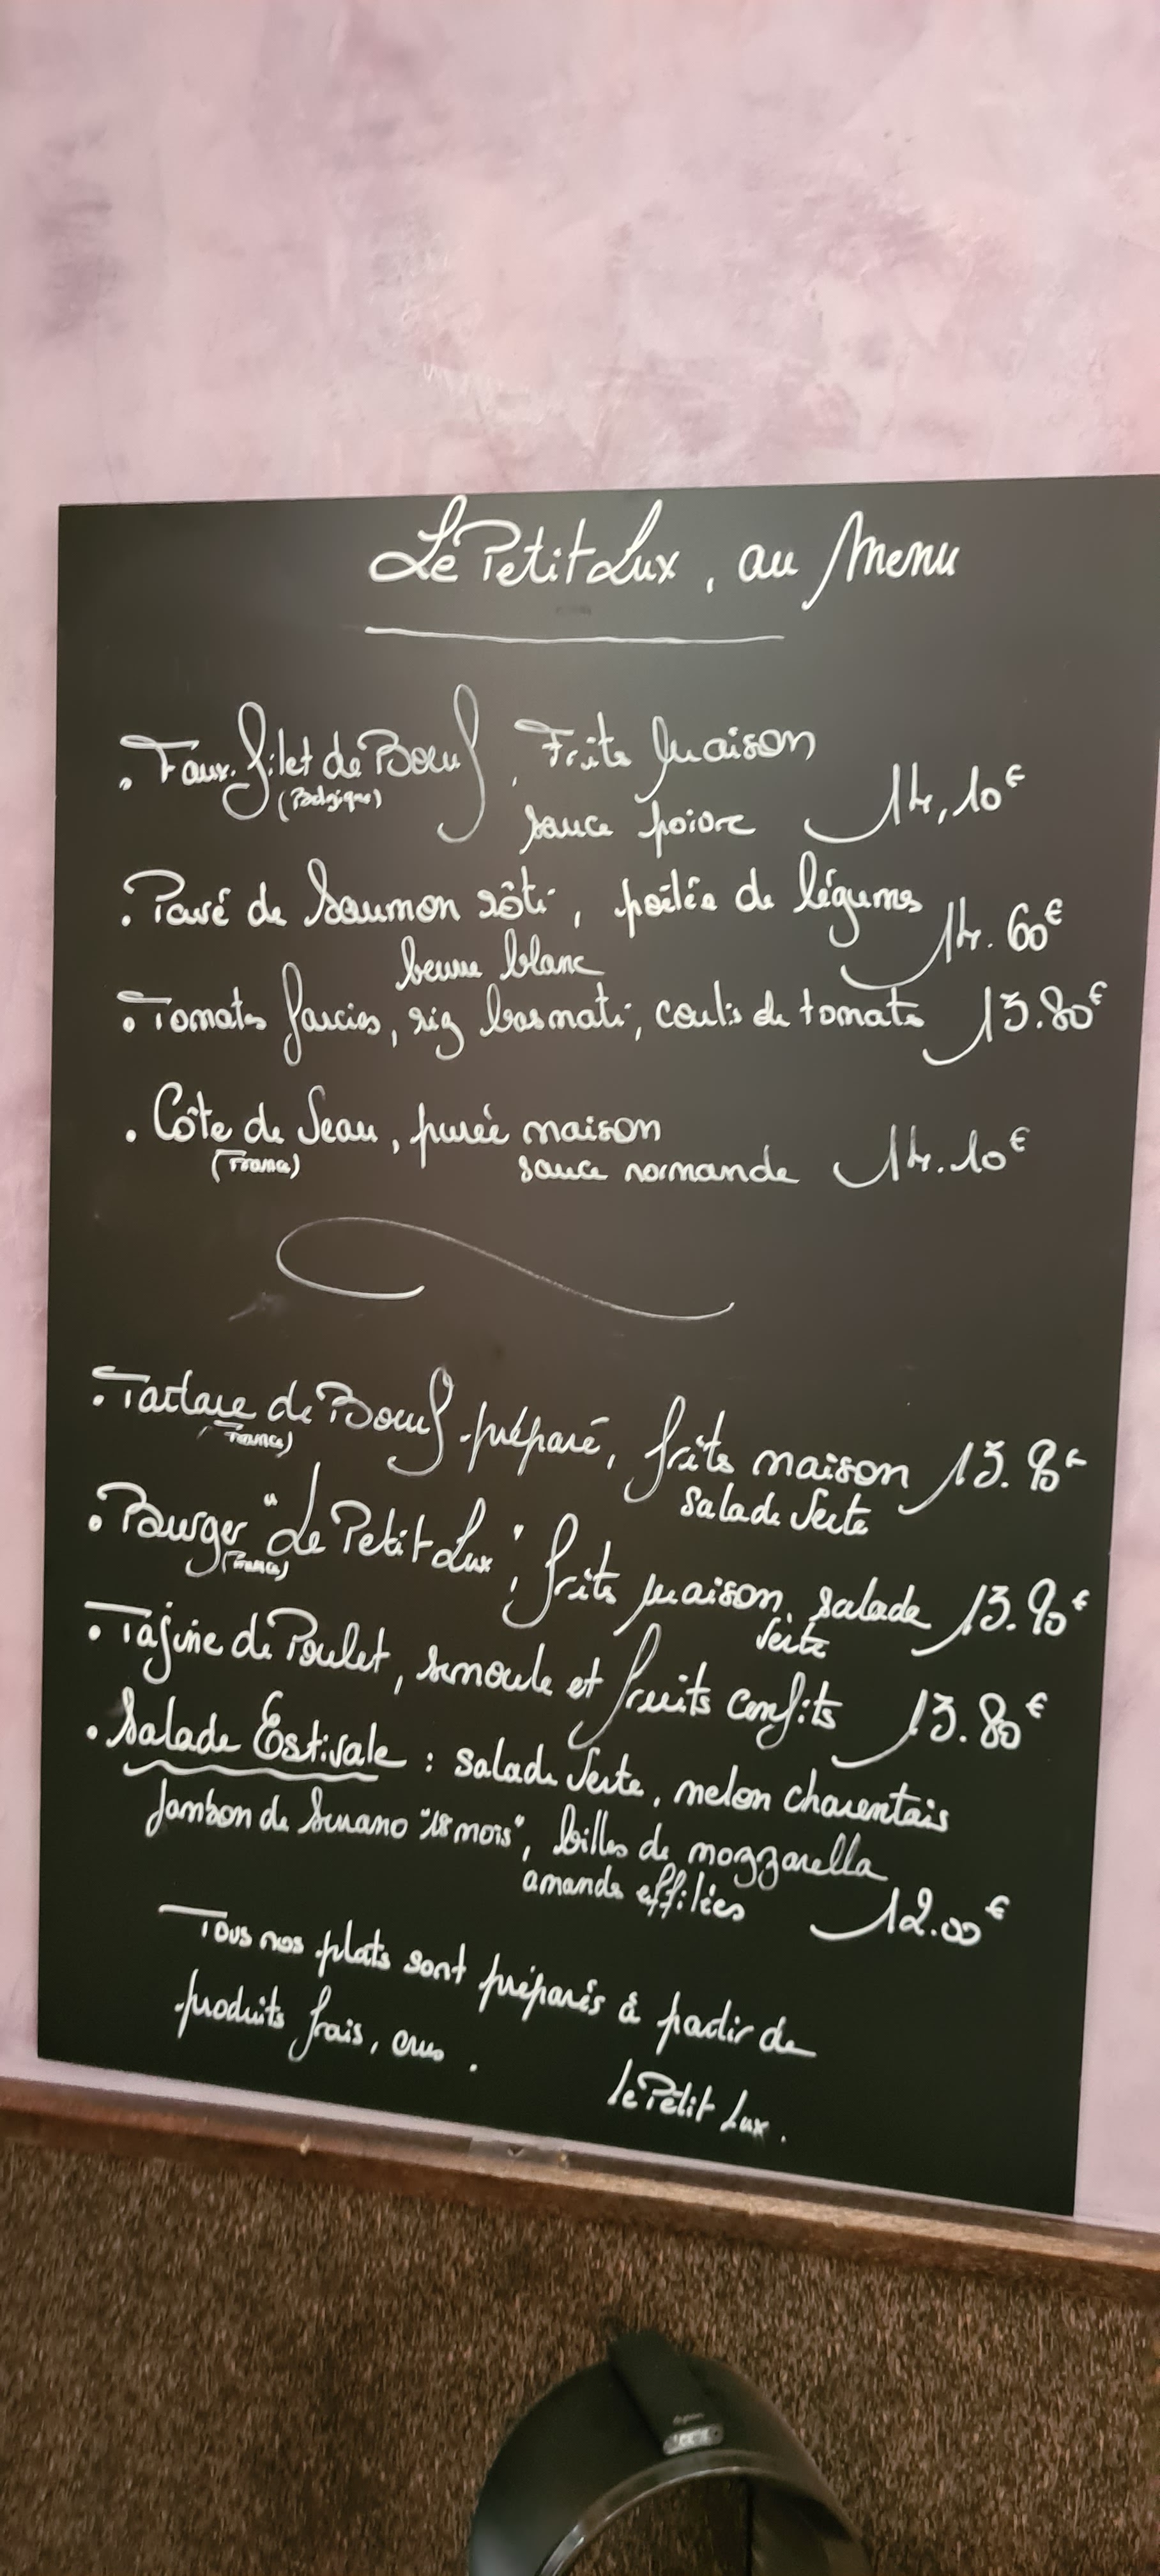 Le Petit Lux, au Menu
. Faux-filet de Boeuf, Frites maison
(Belgique)
sauce poivre 14,10€
. Pavé de Saumon rôti, poêlée de légumes
beurre blanc 14.60€
. Tomates farcies, riz basmati, coulis de tomates 13.80€
. Côte de Veau, purée maison
(France) sauce normande 14.10€
. Tartare de Boeuf préparé, frites maison 13.90€
(France)
salade Verte
. Burger "Le Petit Lux", frites maison, salade 13.90€
(France)
Verte
. Tajine de Poulet, semoule et fruits confits 13.80€
. Salade Estivale : salade Verte, melon charentais
Jambon de Serrano "18 mois", billes de mozzarella
amandes effilées 12.00€
Tous nos plats sont préparés à partir de
produits frais, crus.
Le Petit Lux.